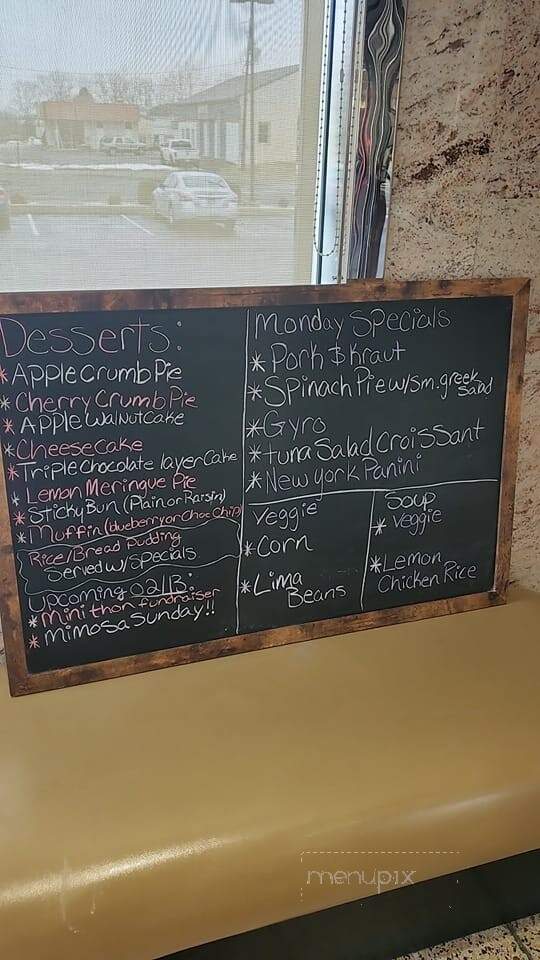 Desserts:
* Apple Crumb Pie
* Cherry Crumb Pie
* Apple Walnut Cake
* Cheesecake
* Triple Chocolate layer Cake
* Lemon Meringue Pie
* Sticky Bun (Plain or Raisin)
* Muffin (blueberry or Choc Chip)
Rice/Bread Pudding
Served w/ Specials
Upcoming 02/13:
* mini thon fundraiser
* mimosa Sunday!!
Monday Specials
* Pork & Kraut
* Spinach Pie w/ Sm. greek Salad
* Gyro
* tuna Salad Croissant
* New york Panini
Veggie
* Corn
* Lima Beans
Soup
* Veggie
* Lemon
Chicken Rice
menupix